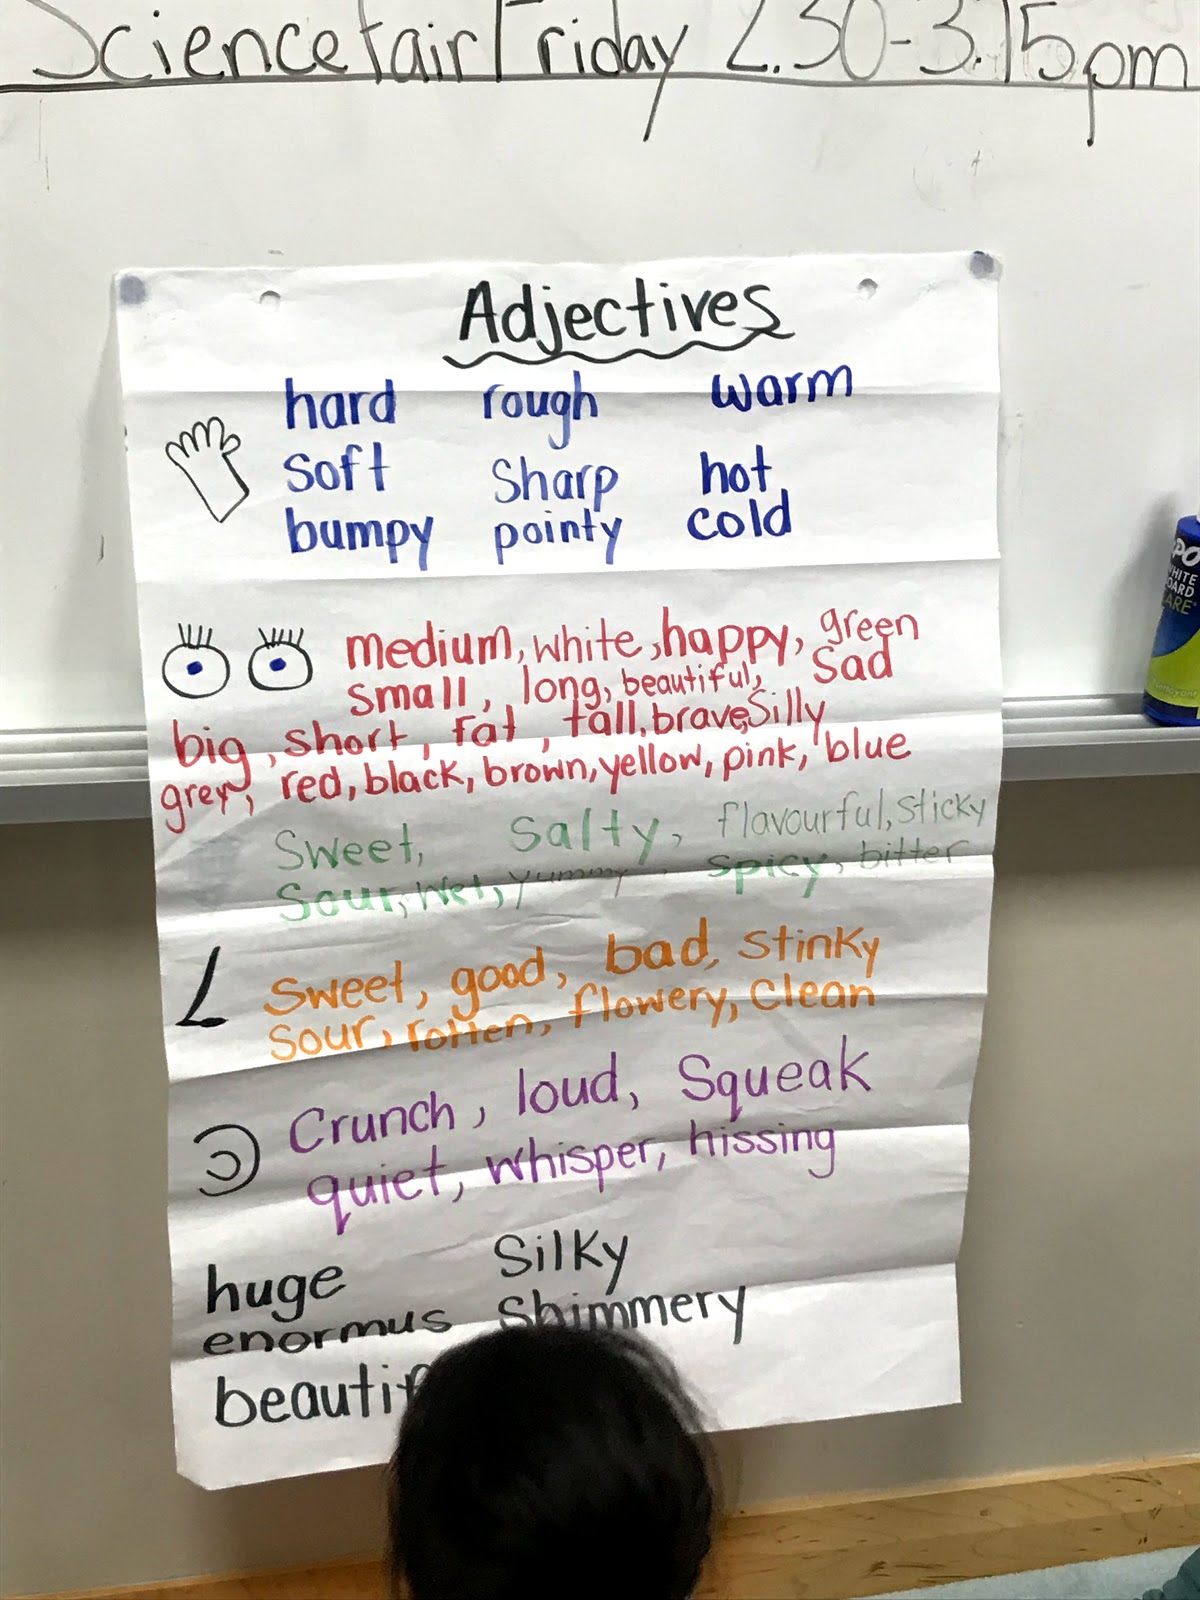 Science fair Friday 2.30-3.15pm
Adjectives
hard rough warm
soft sharp hot
bumpy pointy cold
medium, white, happy, green
small, long, beautiful, sad
big, short, fat, tall, brave, silly
grey, red, black, brown, yellow, pink, blue
Sweet, Salty, flavourful, sticky
Sour, wet, yummy, spicy, bitter
Sweet, good, bad, stinky
Sour, rotten, flowery, clean
Crunch, loud, Squeak
quiet, whisper, hissing
huge Silky
enormus Shimmery
beautif
WHITE